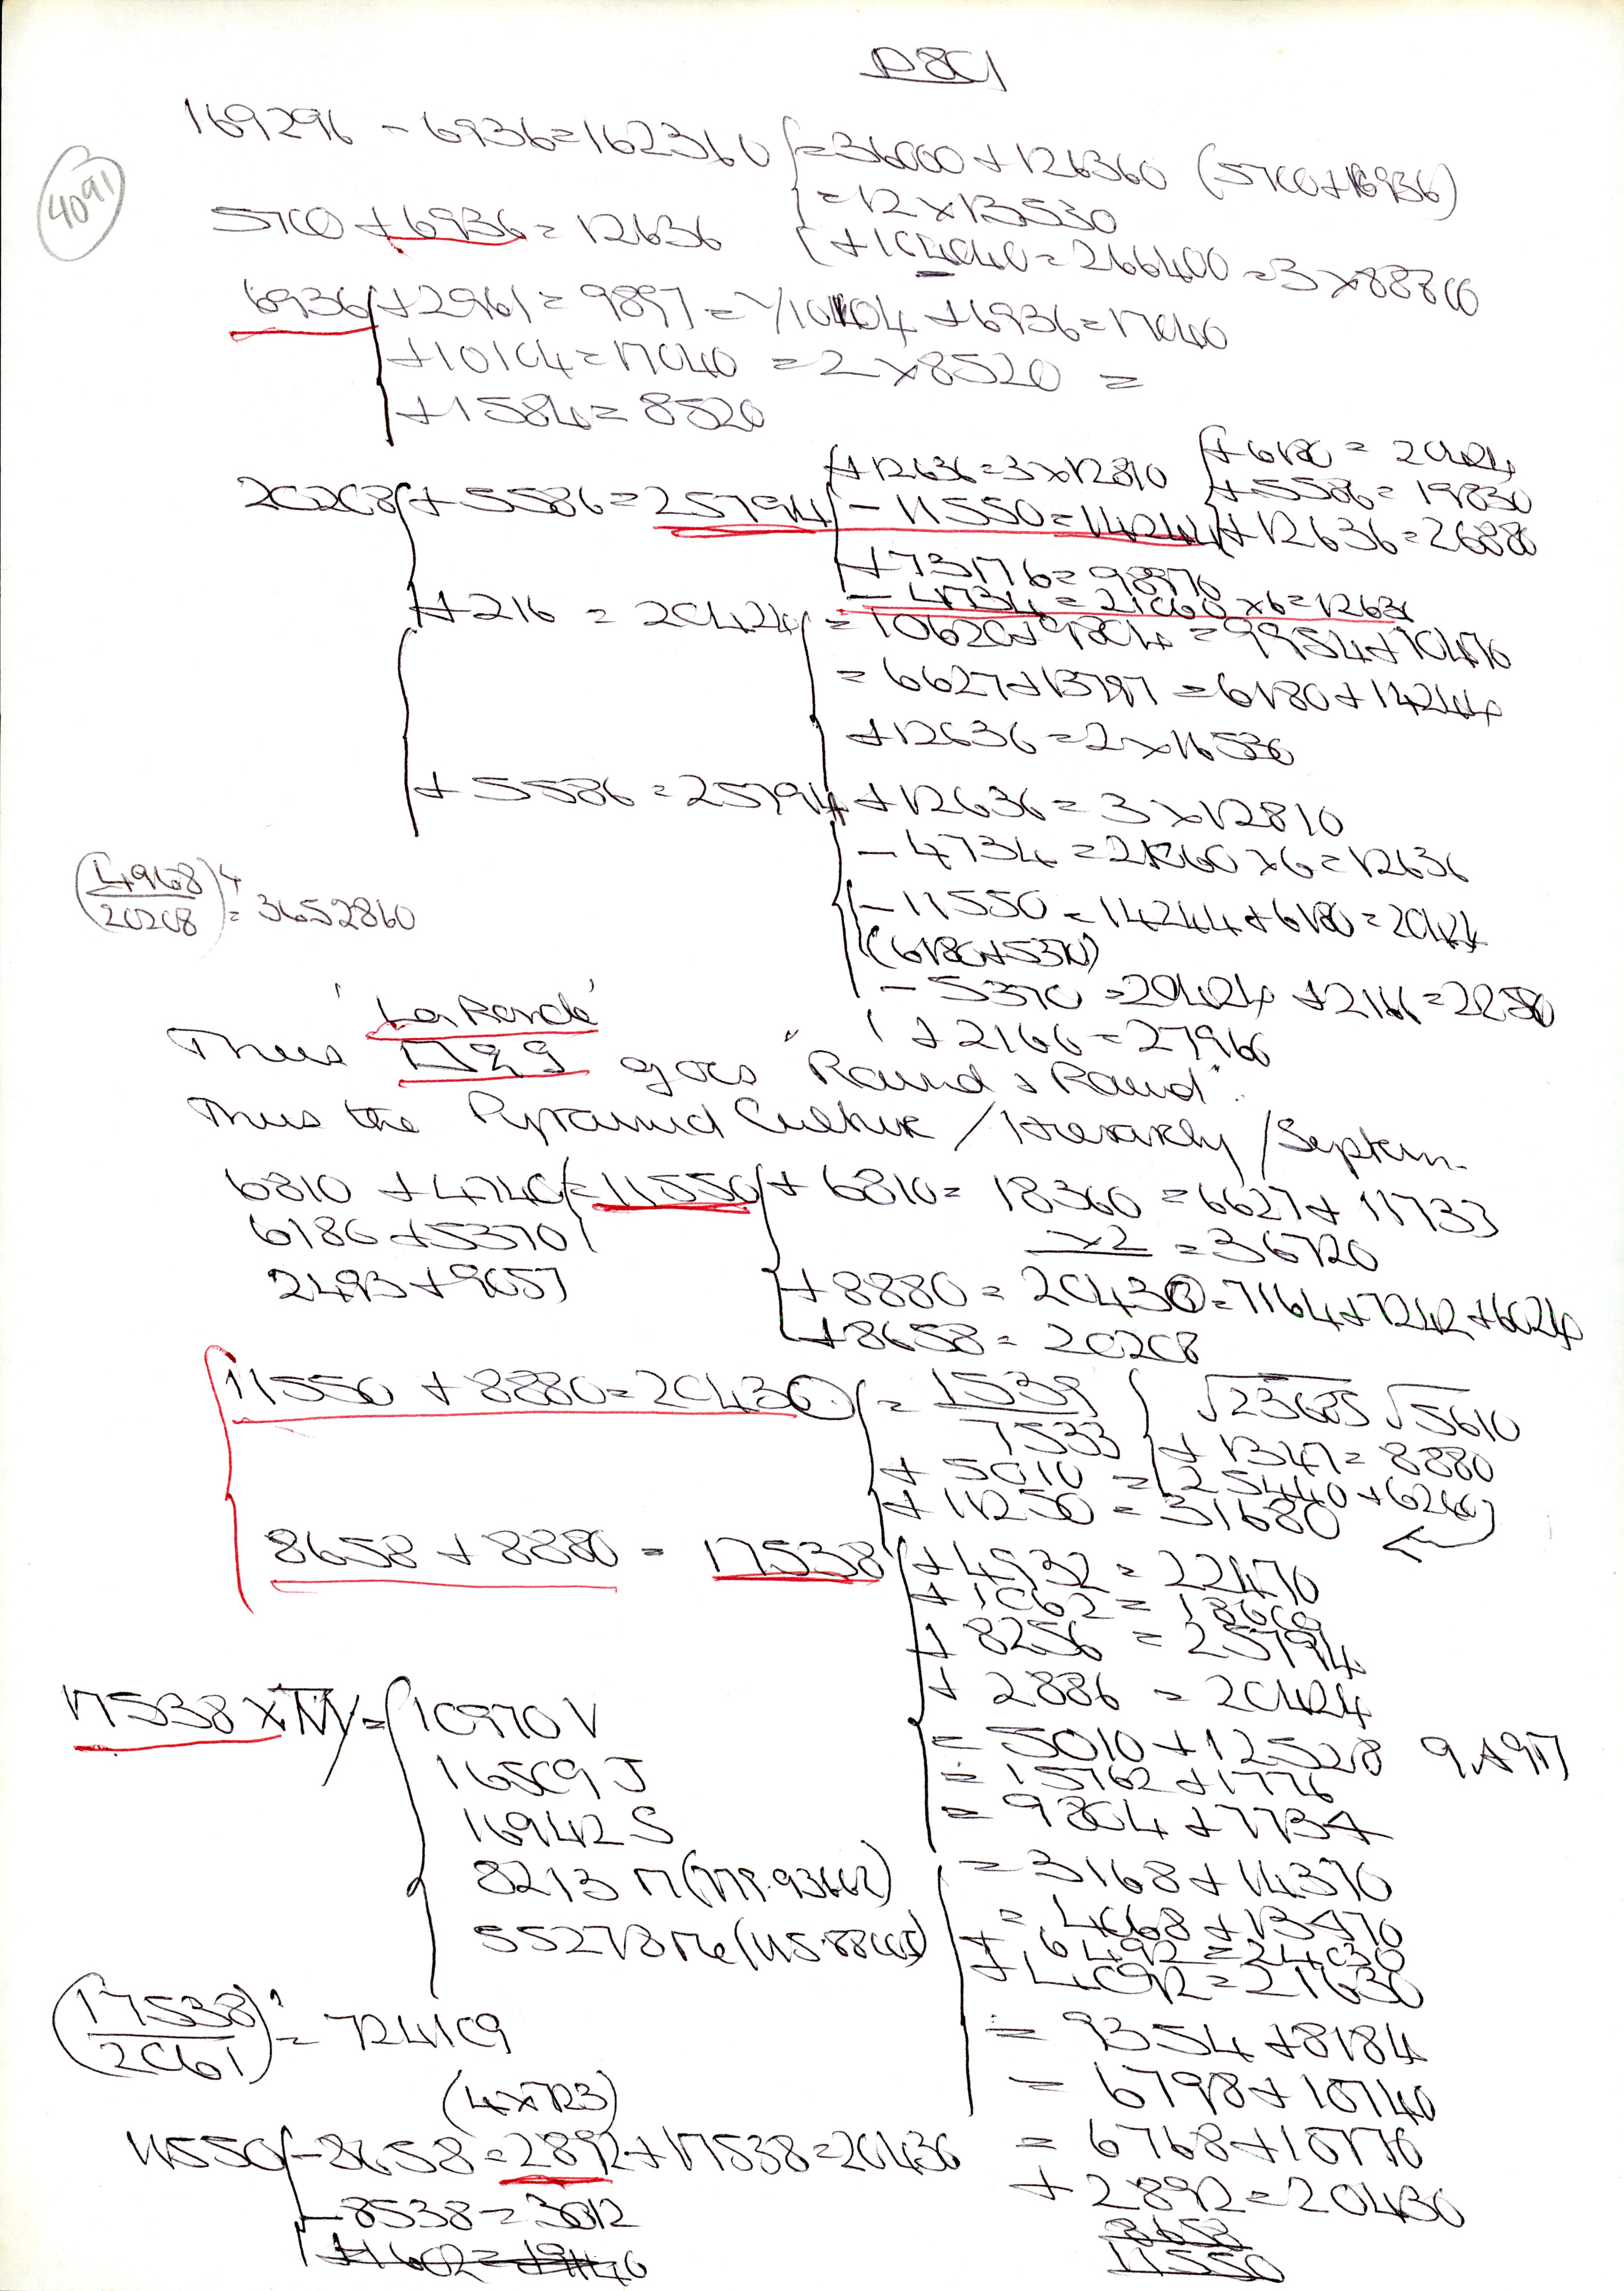 P801
4091
169296 - 6936 = 162360 { = 36000 + 126360 (5700 + 6936)
= 12 x 13530
5700 + 6936 = 12636 + 104040 = 266400 = 3 x 88800
6936 + 2961 = 9897 = √10404 + 6936 = 17040
+ 10104 = 17040 = 2 x 8520 =
+ 1584 = 8520
20208 + 5586 = 25794 + 12636 = 3 x 12810
- 11550 = 14244
+ 6180 = 20424
+ 5586 = 19830
+ 12636 = 26880
+ 73176 = 98970
- 4734 = 21060 x 6 = 12636
+ 216 = 20424 = 10620 + 9804 = 9954 + 10470
= 6627 + 13797 = 6180 + 14244
+ 12636 = 2 x 16530
+ 5586 = 25794 + 12636 = 3 x 12810
- 4734 = 21060 x 6 = 12636
- 11550 = 14244 + 6180 = 20424
(6180 + 5370)
- 5370 = 20424 + 2166 = 22590
+ 2166 = 27966
(4968/20208)4 = 3652860
'La Ronde'
Thus 1729 goes "Round & Round".
Thus the Pyramid Culture / Hierarchy / System.
6810 + 4740 = 11550 + 6810 = 18360 = 6627 + 11733
6180 + 5370
x2 = 36720
2493 + 9057
+ 8880 = 20430 = 7164 + 7242 + 6024
+ 8658 = 20208
11550 + 8880 = 20430 = 1539/7533 √23685 √5610
+ 1347 = 8880
+ 5010 = 25440 + 6240
+ 11250 = 31680
8658 + 8880 = 17538 + 4932 = 22470
+ 1062 = 18600
+ 8256 = 25794
+ 2886 = 20424
= 5010 + 12528
= 15762 + 1776
= 9804 + 7734
= 3168 + 14370
= 4068 + 13470
+ 6492 = 24030
+ 4092 = 21630
= 9354 + 8184
= 6798 + 10740
= 6768 + 10770
+ 2892 = 20430
8658
11550
17538 x
10970 V
16509 J
16942 S
8213 M (779.93662)
(17538/2061)² = 724109
(4 x 723)
11550 - 8658 = 2892 + 17538 = 20430
- 8538 = 3012